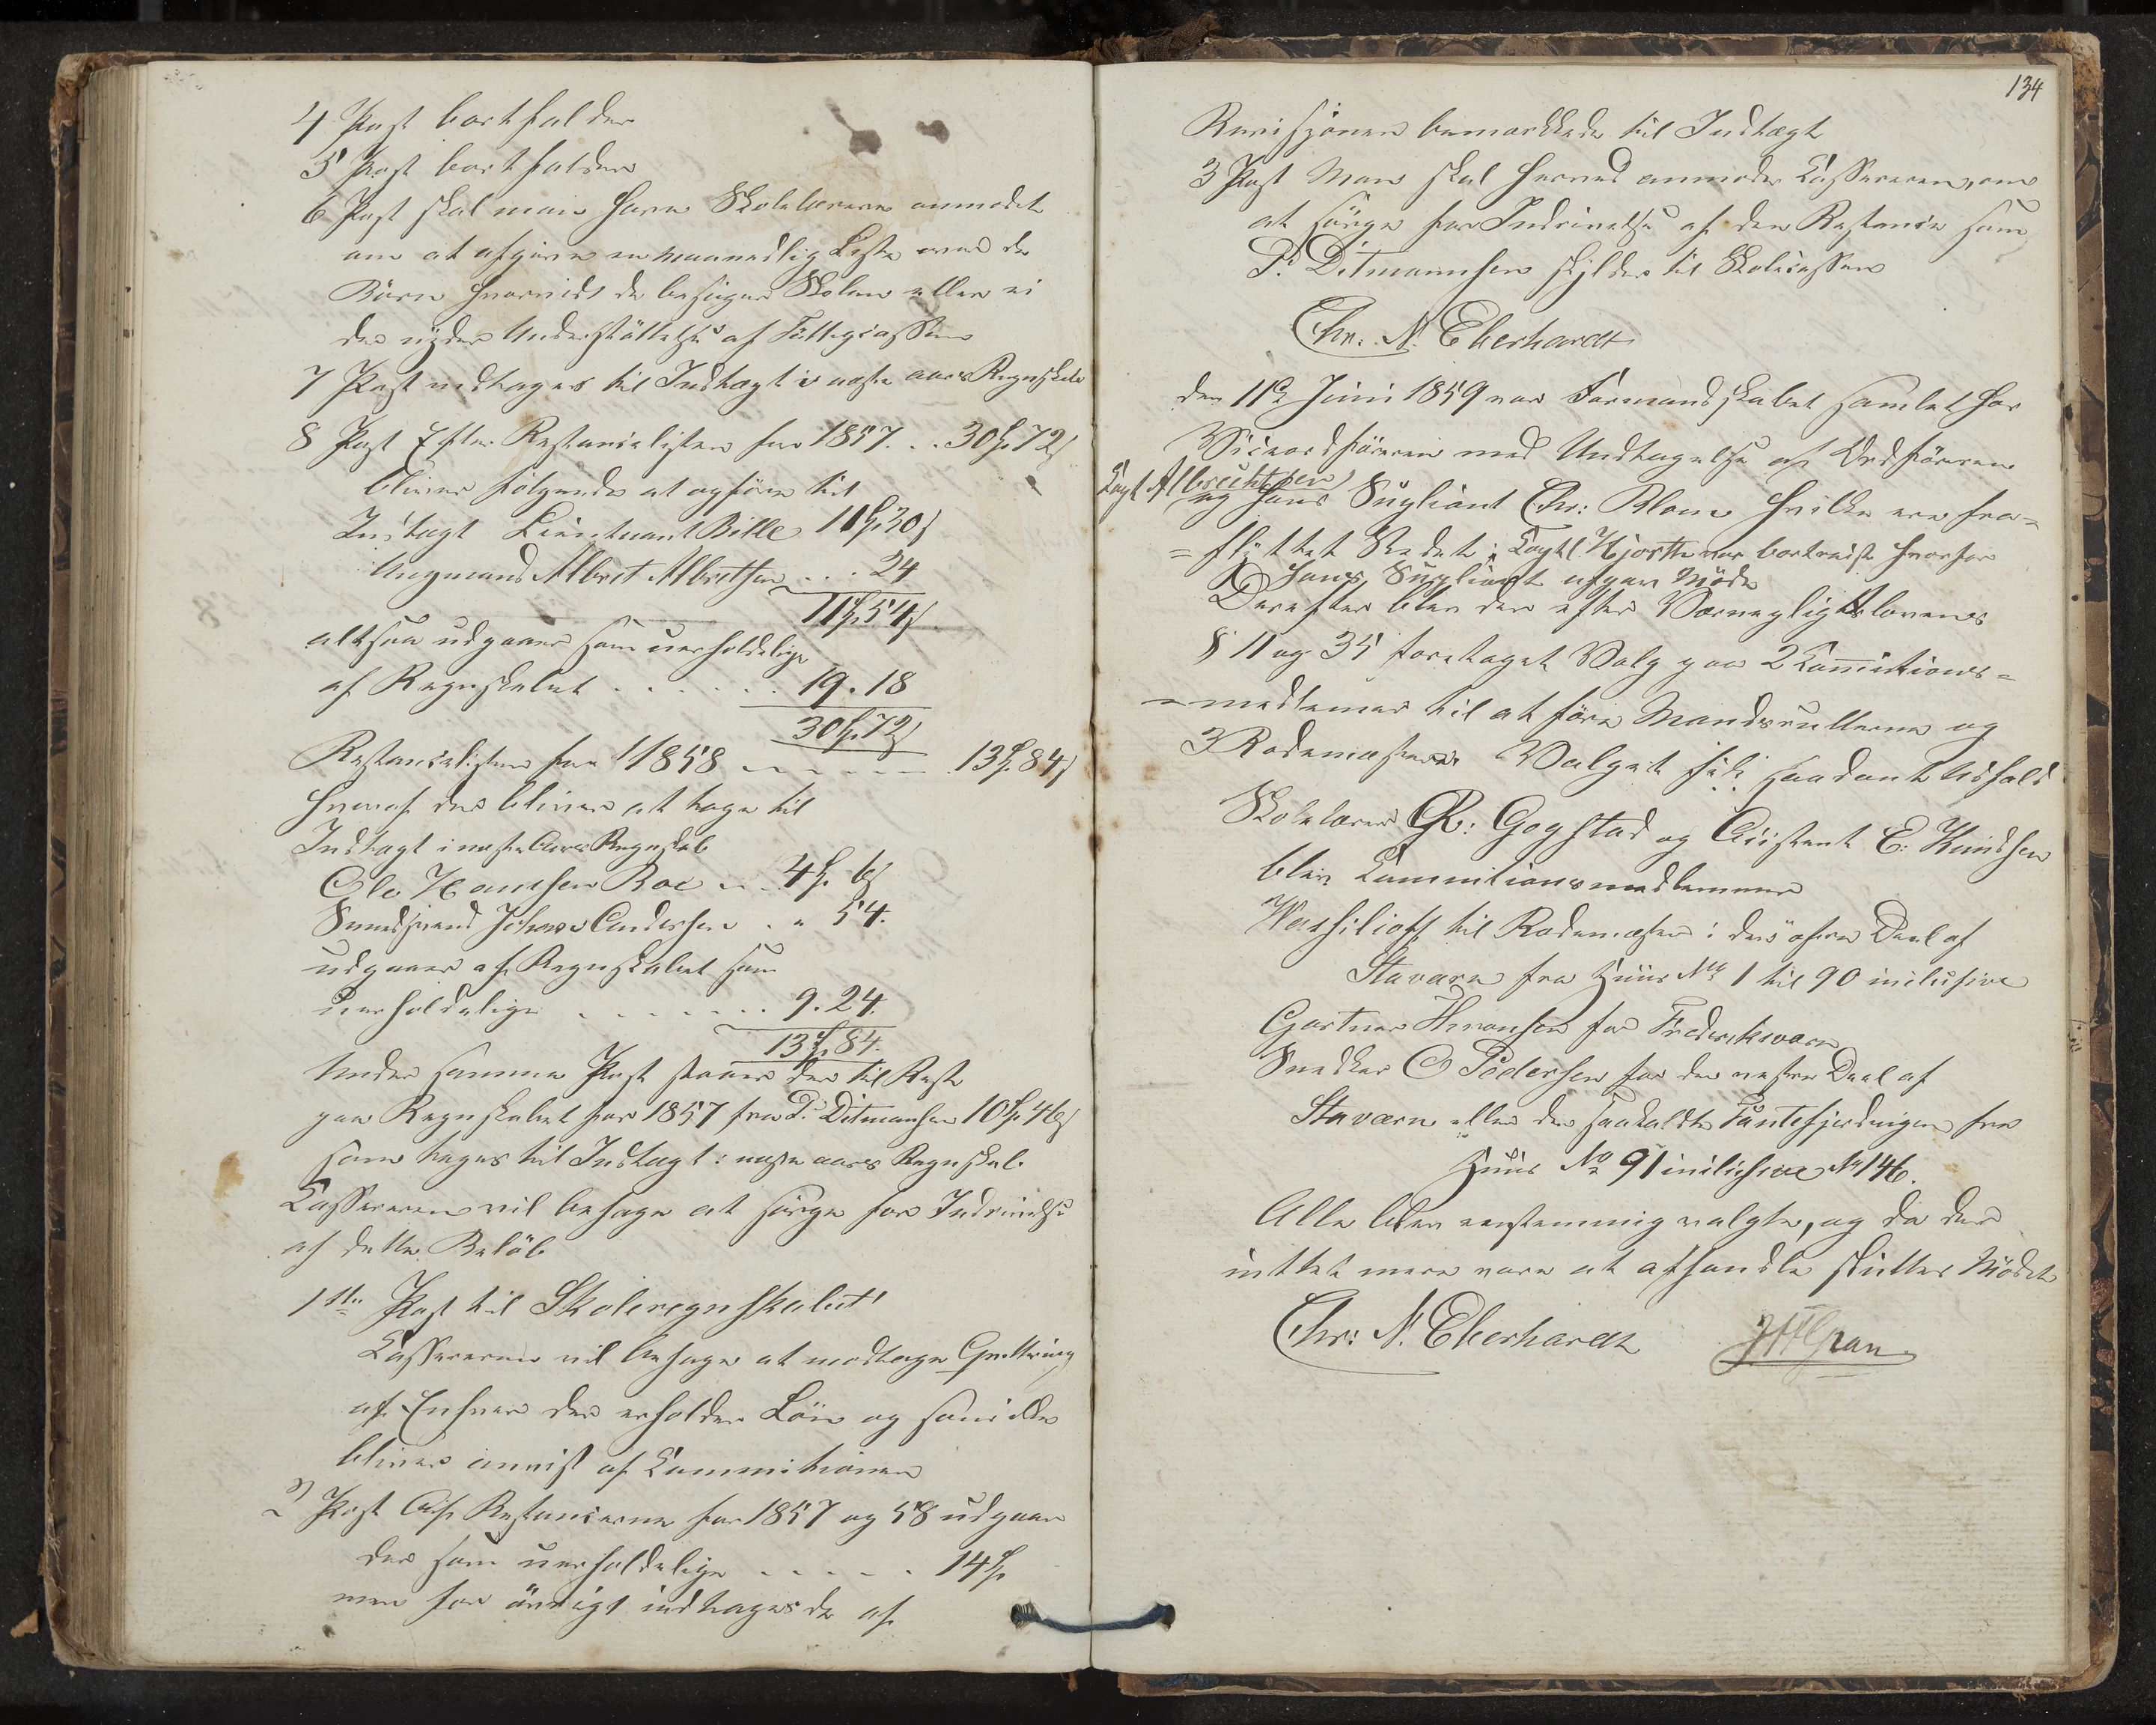 4 Post bortfalder
5 Post bortfalder
6 Post skal man have Skolelæreren anmodet
om at afgive en maanedlig Liste over de
Börn hvorvidt de besöger Skolen eller ei
der nyder Understöttelse af Fattigcassen
7 Post indtages til Indtægt i næste aars Regnskab
8 Post Efter Restancelisten for 1857 . . 30 72
bliver fölgende at opföre til
Indtægt Lieutnant Bille 11 30
Ungmand Albret Albretsen . . . 24
11 54
altsaa udgaaer som uerholdelige
af Regnskabet . . . . . . . 19. 18
30 72
Restancelisten for 1858 - - - - - - 13 84
hvoraf der bliver at tage til
Indtægt i næste Aars Regnskab
Ole Hansen Roe . . 4 6
Johan Andersen . " 54.
udgaaer af Regnskabet som
uerholdelige . . . . . . . 9. 24.
13 84.
Under samme Post staaer der til Rest
paa Regnskabet for 1857 fra P. Ditmansen 10 46
som tages til Indtægt i næste aars Regnskab.
Cassereren vil besörge at sörge for Indrivelse
af dette Belöb
1ste Post til Skoleregnskabet
Cassereren vil besörge at modtage Qvittering
af Enhver der erholder Lön og som ikke
bliver anvist af Commitionen
2 Post Af Restancerne for 1857 og 58 udgaar
der som uerholdelige . . . . . 14
men for övrigt indtages de af
134
Revisjonen bemærkede til Indtægt
3 Post Man skal herved anmode Cassereren, om
at sörge for Indrivelse af den Restance som
P. Ditmannsen skylder til Skolecassen
Chr. N. Eberhardt
den 11te Juni 1859 var Formandskabet samlet hos
Viceordföreren med Undtagelse af Ordföreren
Capt Albrechtsen
og hans Supliant Chr: Blom hvilke ere fra=
=flyttet Stedet; Captl Hjorth var bortreist hvorfor
hans Supliant afgav Möde
Derefter blev der efter Værnepligtslovens
§ 11 og 35 foretaget Valg paa 2 Commitions=
=medlemer til at före Mandsrullerne og
3 Rodemestere. Valget fik saadant Udfald
Skolelærer R: Gogstad og Assistent E: Knudsen
blev Commitionsmedlemmer
Wassilioff til Rodemester i den öfre Deel af
Stavarn fra Huus No 1 til 90 inclusive
Gartner for Frederiksvarn
Snedker O Pedersen for den nedre Deel af
Stavarn eller den saakaldte fra
Huus No 91 inclusive No 146.
Alle blev eenstemmig valgte, og da der
inttet mere vare at afhandle sluttes Mödet
Chr: N. Eberhardt
Gran